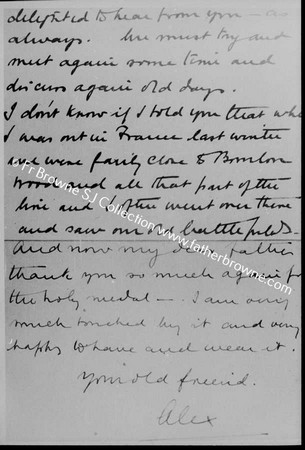 delighted to hear from you — as
always. We must try and
meet again some time and
discuss again old days.
I don't know if I told you that when
I was out in France last winter
we were fairly close to Bourlon
Wood and all that part of the
line and I often went over there
and saw our old battlefields.
And now my dear Father
thank you so much again for
the holy medal — I am very
much touched by it and very
happy to have and wear it.
Your old friend.
Alex
Fr Browne SJ Collection www.fatherbrowne.com